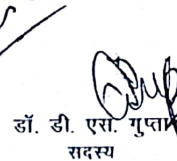 डॉ. डी. एस. गुप्ता
सदस्य